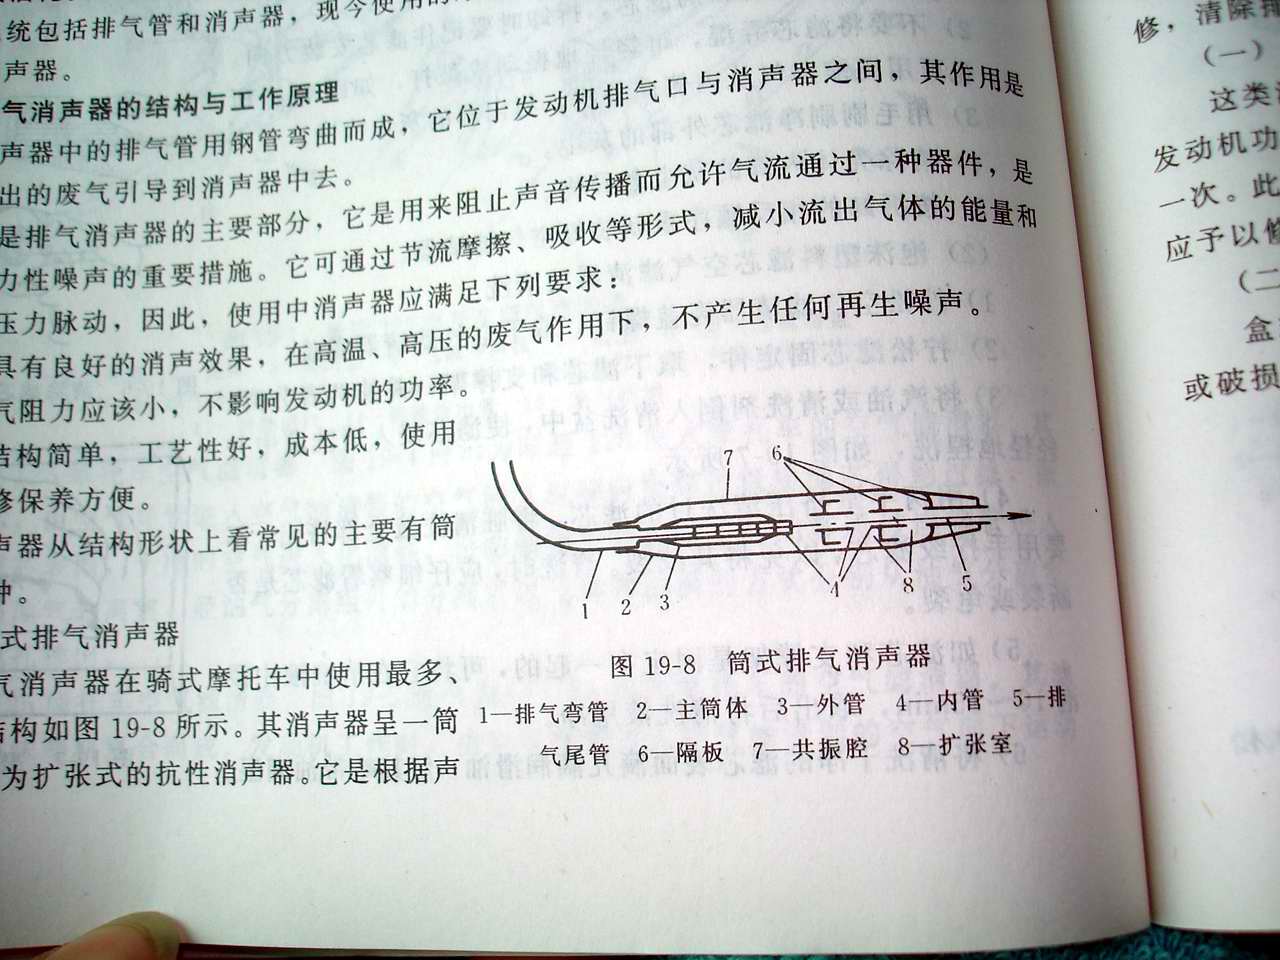 统包括排气管和消声器，现今使用的
声器。
气消声器的结构与工作原理
声器中的排气管用钢管弯曲而成，它位于发动机排气口与消声器之间，其作用是
出的废气引导到消声器中去。
是排气消声器的主要部分，它是用来阻止声音传播而允许气流通过一种器件，是
力性噪声的重要措施。它可通过节流摩擦、吸收等形式，减小流出气体的能量和
压力脉动，因此，使用中消声器应满足下列要求：
具有良好的消声效果，在高温、高压的废气作用下，不产生任何再生噪声。
气阻力应该小，不影响发动机的功率。
结构简单，工艺性好，成本低，使用
修保养方便。
声器从结构形状上看常见的主要有筒
种。
式排气消声器
气消声器在骑式摩托车中使用最多、
结构如图 19-8 所示。其消声器呈一筒
为扩张式的抗性消声器。它是根据声
7 6
1 2 3 4 8 5
图 19-8 筒式排气消声器
1—排气弯管 2—主筒体 3—外管 4—内管 5—排
气尾管 6—隔板 7—共振腔 8—扩张室
修，清除排
（一）
这类
发动机功
一次。此
应予以修
（二
盒
或破损